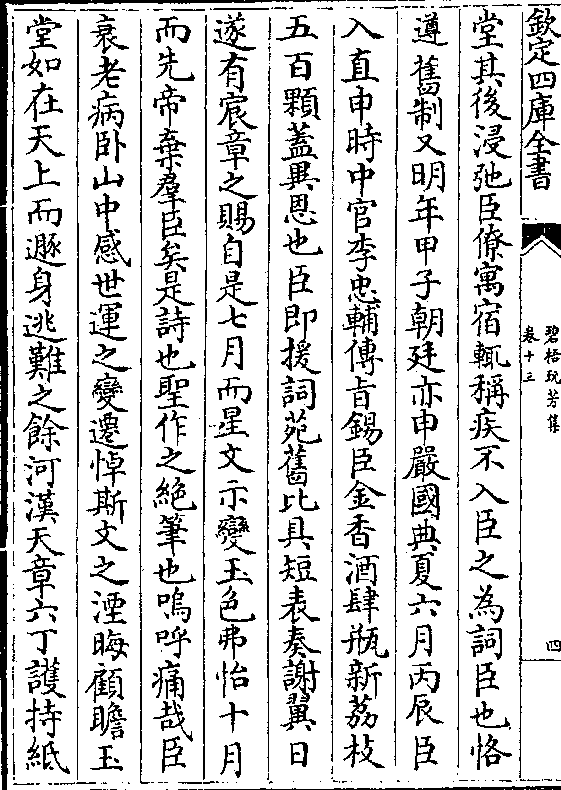 欽定四庫全書
碧梧玩芳集
卷十三
四
堂其後浸弛臣僚寓宿輒稱疾不入臣之為詞臣也恪
遵舊制又明年甲子朝廷亦申嚴國典夏六月丙辰臣
入直申時中官李忠輔傳㫖錫臣金香酒肆瓶新荔枝
五百顆蓋異恩也臣即援詞苑舊比具短表奏謝翼日
遂有宸章之賜自是七月而星文示變玉色弗怡十月
而先帝棄羣臣矣是詩也聖作之絶筆也嗚呼痛哉臣
衰老病卧山中感世運之變遷悼斯文之湮晦顧瞻玉
堂如在天上而遯身逃難之餘河漢天章六丁護持紙